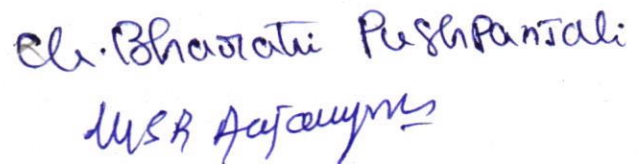 Ch. Bharati Pushpanjali
MSR Anjaneyulu